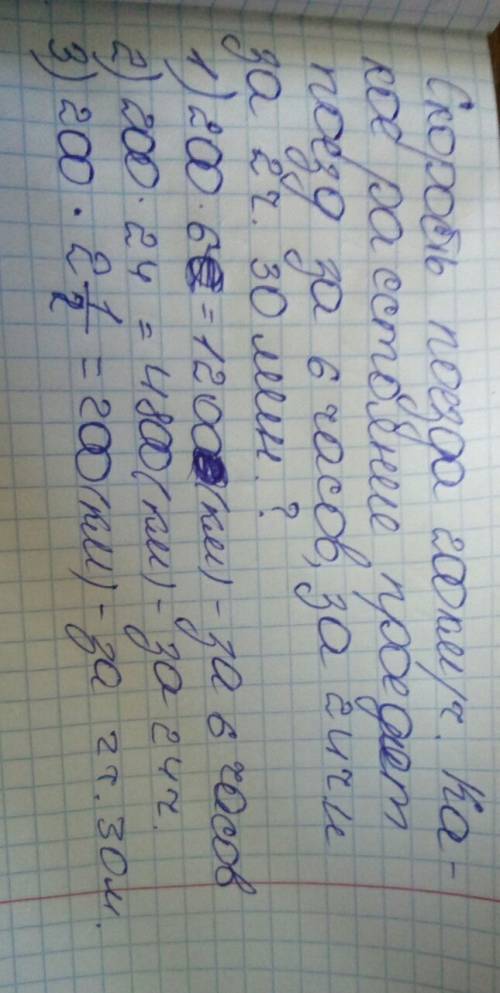 Скорость поезда 200км/ч. Ка-
кое расстояние проедет
поезд за 6 часов, за 24ч и
за 2ч. 30 мин.?
1) 200 · 6 = 1200(км) - за 6 часов
2) 200 · 24 = 4800(км) - за 24ч.
3) 200 · 2 1/2 = 200(км) - за 2ч. 30м.